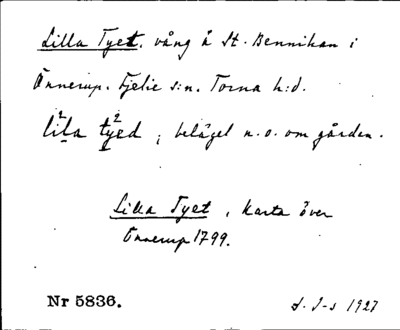 Lilla Tyet. vång å St. Bennikan i
Önnerup. Fjelie s:n. Torna h:d.
lila tyed; beläget n.o. om gården.
Lilla Tyet, Karta över
Önnerup 1799.
Nr 5836.
1927